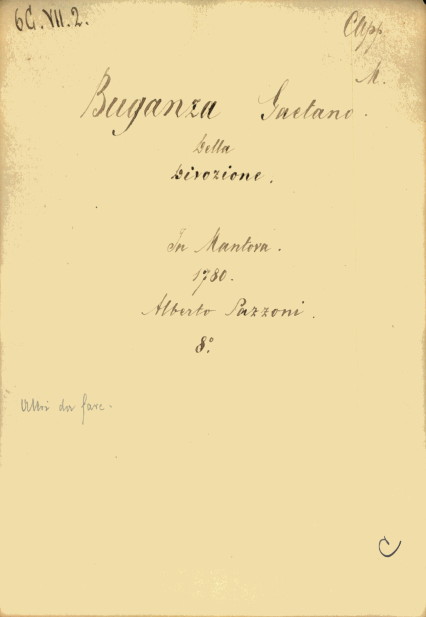 6G. VII. 2.
Capp.
M.
Buganza Gaetano.
Della
Divozione.
In Mantova.
1780.
Alberto Pazzoni.
8º
Altri da fare.
C